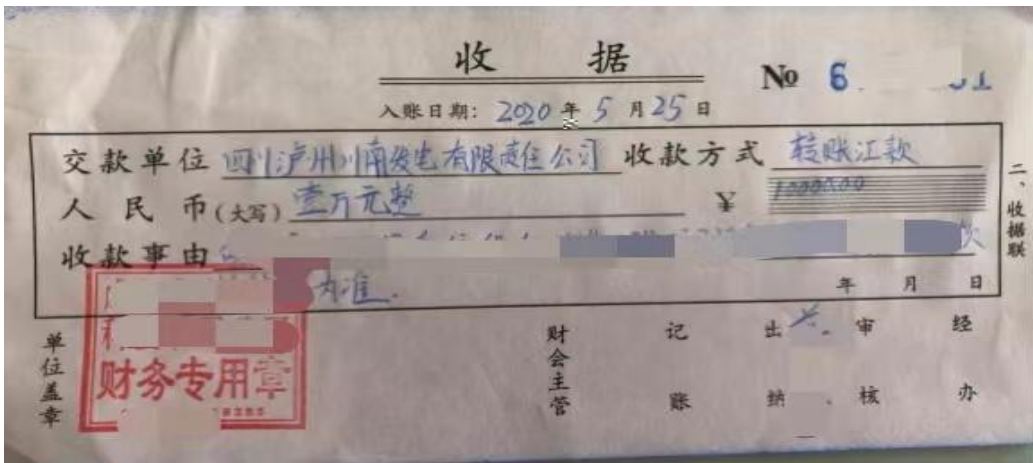 收 据
No 6
入账日期：2020 年 5 月 25 日
交款单位 四川泸州川南发电有限责任公司 收款方式 转账汇款
人 民 币(大写) 壹万元整 ¥ 10000.00
收款事由 款
为准.
年 月 日
二、收据联
单位盖章
财会主管
记账
出纳
审核
经办
财务专用章